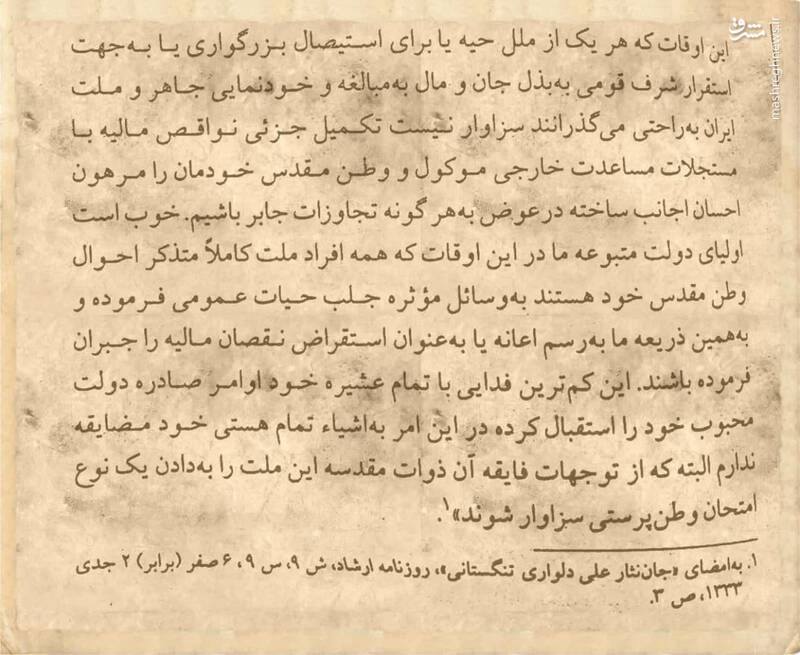 این اوقات که هر یک از ملل حیه یا برای استیصال بزرگواری یا به‌جهت
استقرار شرف قومی به‌بذل جان و مال به‌مبالغه و خودنمایی جاهر و ملت
ایران به‌راحتی می‌گذرانند سزاوار نیست تکمیل جزئی نواقص مالیه با
مستجلات مساعدت خارجی موکول و وطن مقدس خودمان را مرهون
احسان اجانب ساخته درعوض به‌هر گونه تجاوزات جابر باشیم. خوب است
اولیای دولت متبوعه ما در این اوقات که همه افراد ملت کاملاً متذکر احوال
وطن مقدس خود هستند به‌وسائل مؤثره جلب حیات عمومی فرموده و
به‌همین ذریعه ما به‌رسم اعانه یا به‌عنوان استقراض نقصان مالیه را جبران
فرموده باشند. این کم‌ترین فدایی با تمام عشیره خود اوامر صادره دولت
محبوب خود را استقبال کرده در این امر به‌اشیاء تمام هستی خود مضایقه
ندارم البته که از توجهات فایقه آن ذوات مقدسه این ملت را به‌دادن یک نوع
امتحان وطن‌پرستی سزاوار شوند»۱.
۱. به‌امضای «جان‌نثار علی دلواری تنگستانی»، روزنامه ارشاد، ش ۹، س ۹، ۶ صفر (برابر) ۲ جدی
۱۳۳۳، ص ۳.
مشرق
mashreghnews.ir